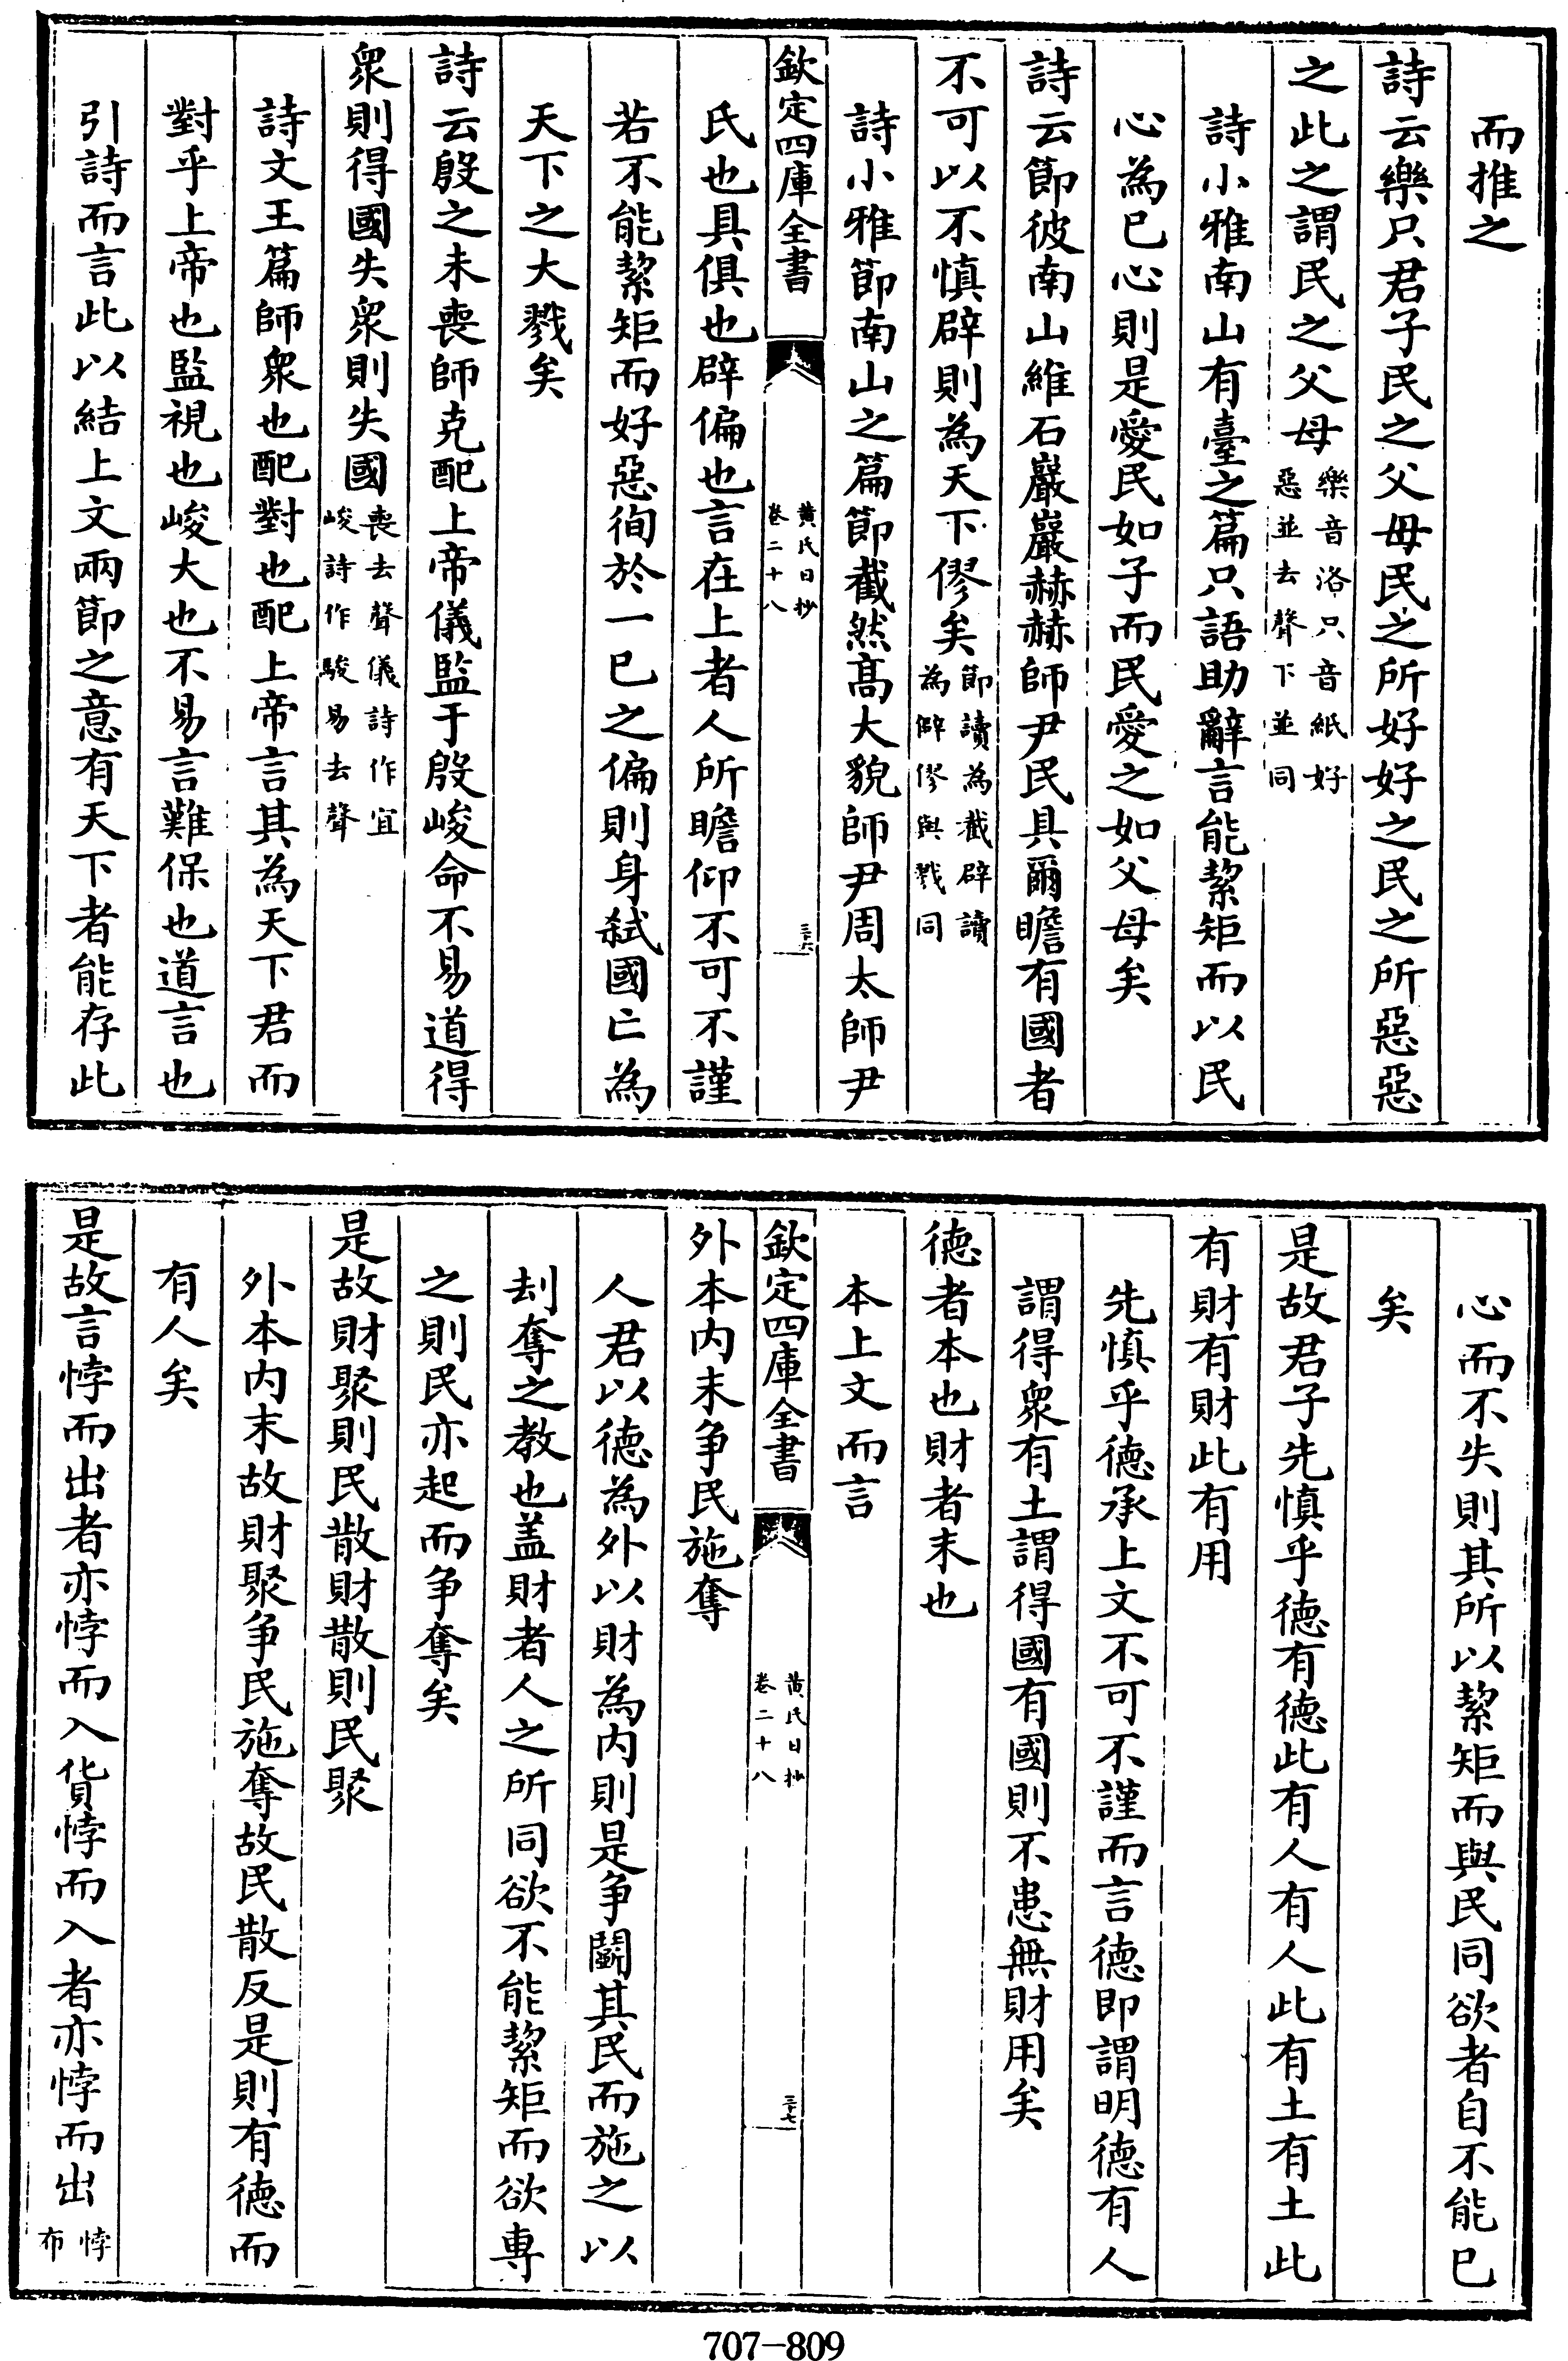 而推之
詩云樂只君子民之父母民之所好好之民之所惡惡
之此之謂民之父母樂音洛只音紙好
惡並去聲下並同
詩小雅南山有臺之篇只語助辭言能絜矩而以民
心為已心則是愛民如子而民愛之如父母矣
詩云節彼南山維石巖巖赫赫師尹民具爾瞻有國者
不可以不慎辟則為天下僇矣節讀為截辟讀
為僻僇與戮同
詩小雅節南山之篇節截然髙大貌師尹周太師尹
欽定四庫全書
黄氏日抄
卷二十八
三十六
氏也具俱也辟偏也言在上者人所瞻仰不可不謹
若不能絜矩而好惡徇於一已之偏則身弑國亡為
天下之大戮矣
詩云殷之未喪師克配上帝儀監于殷峻命不易道得
衆則得國失衆則失國喪去聲儀詩作宜
峻詩作駿易去聲
詩文王篇師衆也配對也配上帝言其為天下君而
對乎上帝也監視也峻大也不易言難保也道言也
引詩而言此以結上文兩節之意有天下者能存此
心而不失則其所以絜矩而與民同欲者自不能已
矣
是故君子先慎乎徳有徳此有人有人此有土有土此
有財有財此有用
先慎乎徳承上文不可不謹而言徳即謂明徳有人
謂得衆有土謂得國有國則不患無財用矣
徳者本也財者末也
本上文而言
欽定四庫全書
黄氏日抄
卷二十八
三十七
外本内末争民施奪
人君以徳為外以財為内則是争鬬其民而施之以
刦奪之教也盖財者人之所同欲不能絜矩而欲専
之則民亦起而争奪矣
是故財聚則民散財散則民聚
外本内末故財聚争民施奪故民散反是則有徳而
有人矣
是故言悖而出者亦悖而入貨悖而入者亦悖而出悖
布
707-809